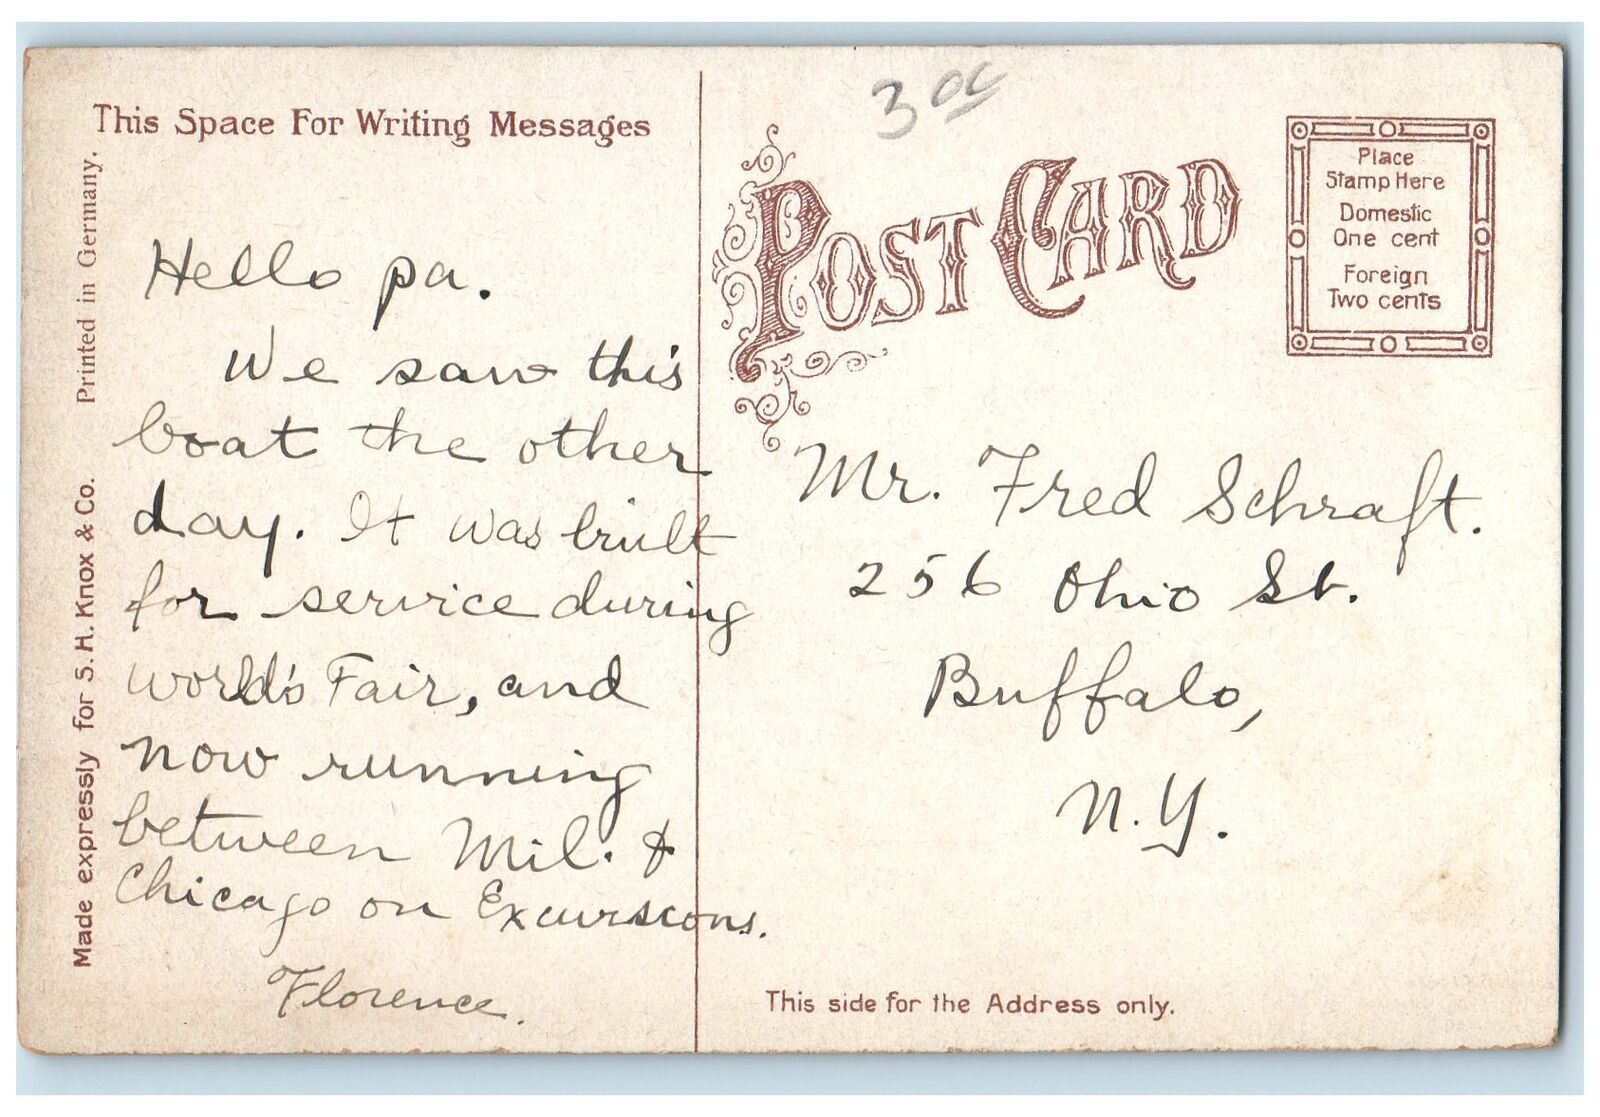 This Space For Writing Messages
Made expressly for S. H. Knox & Co. Printed in Germany.
Hello pa.
We saw this
boat the other
day. It was built
for service during
world's Fair, and
now running
between Mil. &
Chicago on Excursions.
Florence.
3 00
POST CARD
Place
Stamp Here
Domestic
One cent
Foreign
Two cents
Mr. Fred Schraft.
256 Ohio St.
Buffalo,
N.Y.
This side for the Address only.